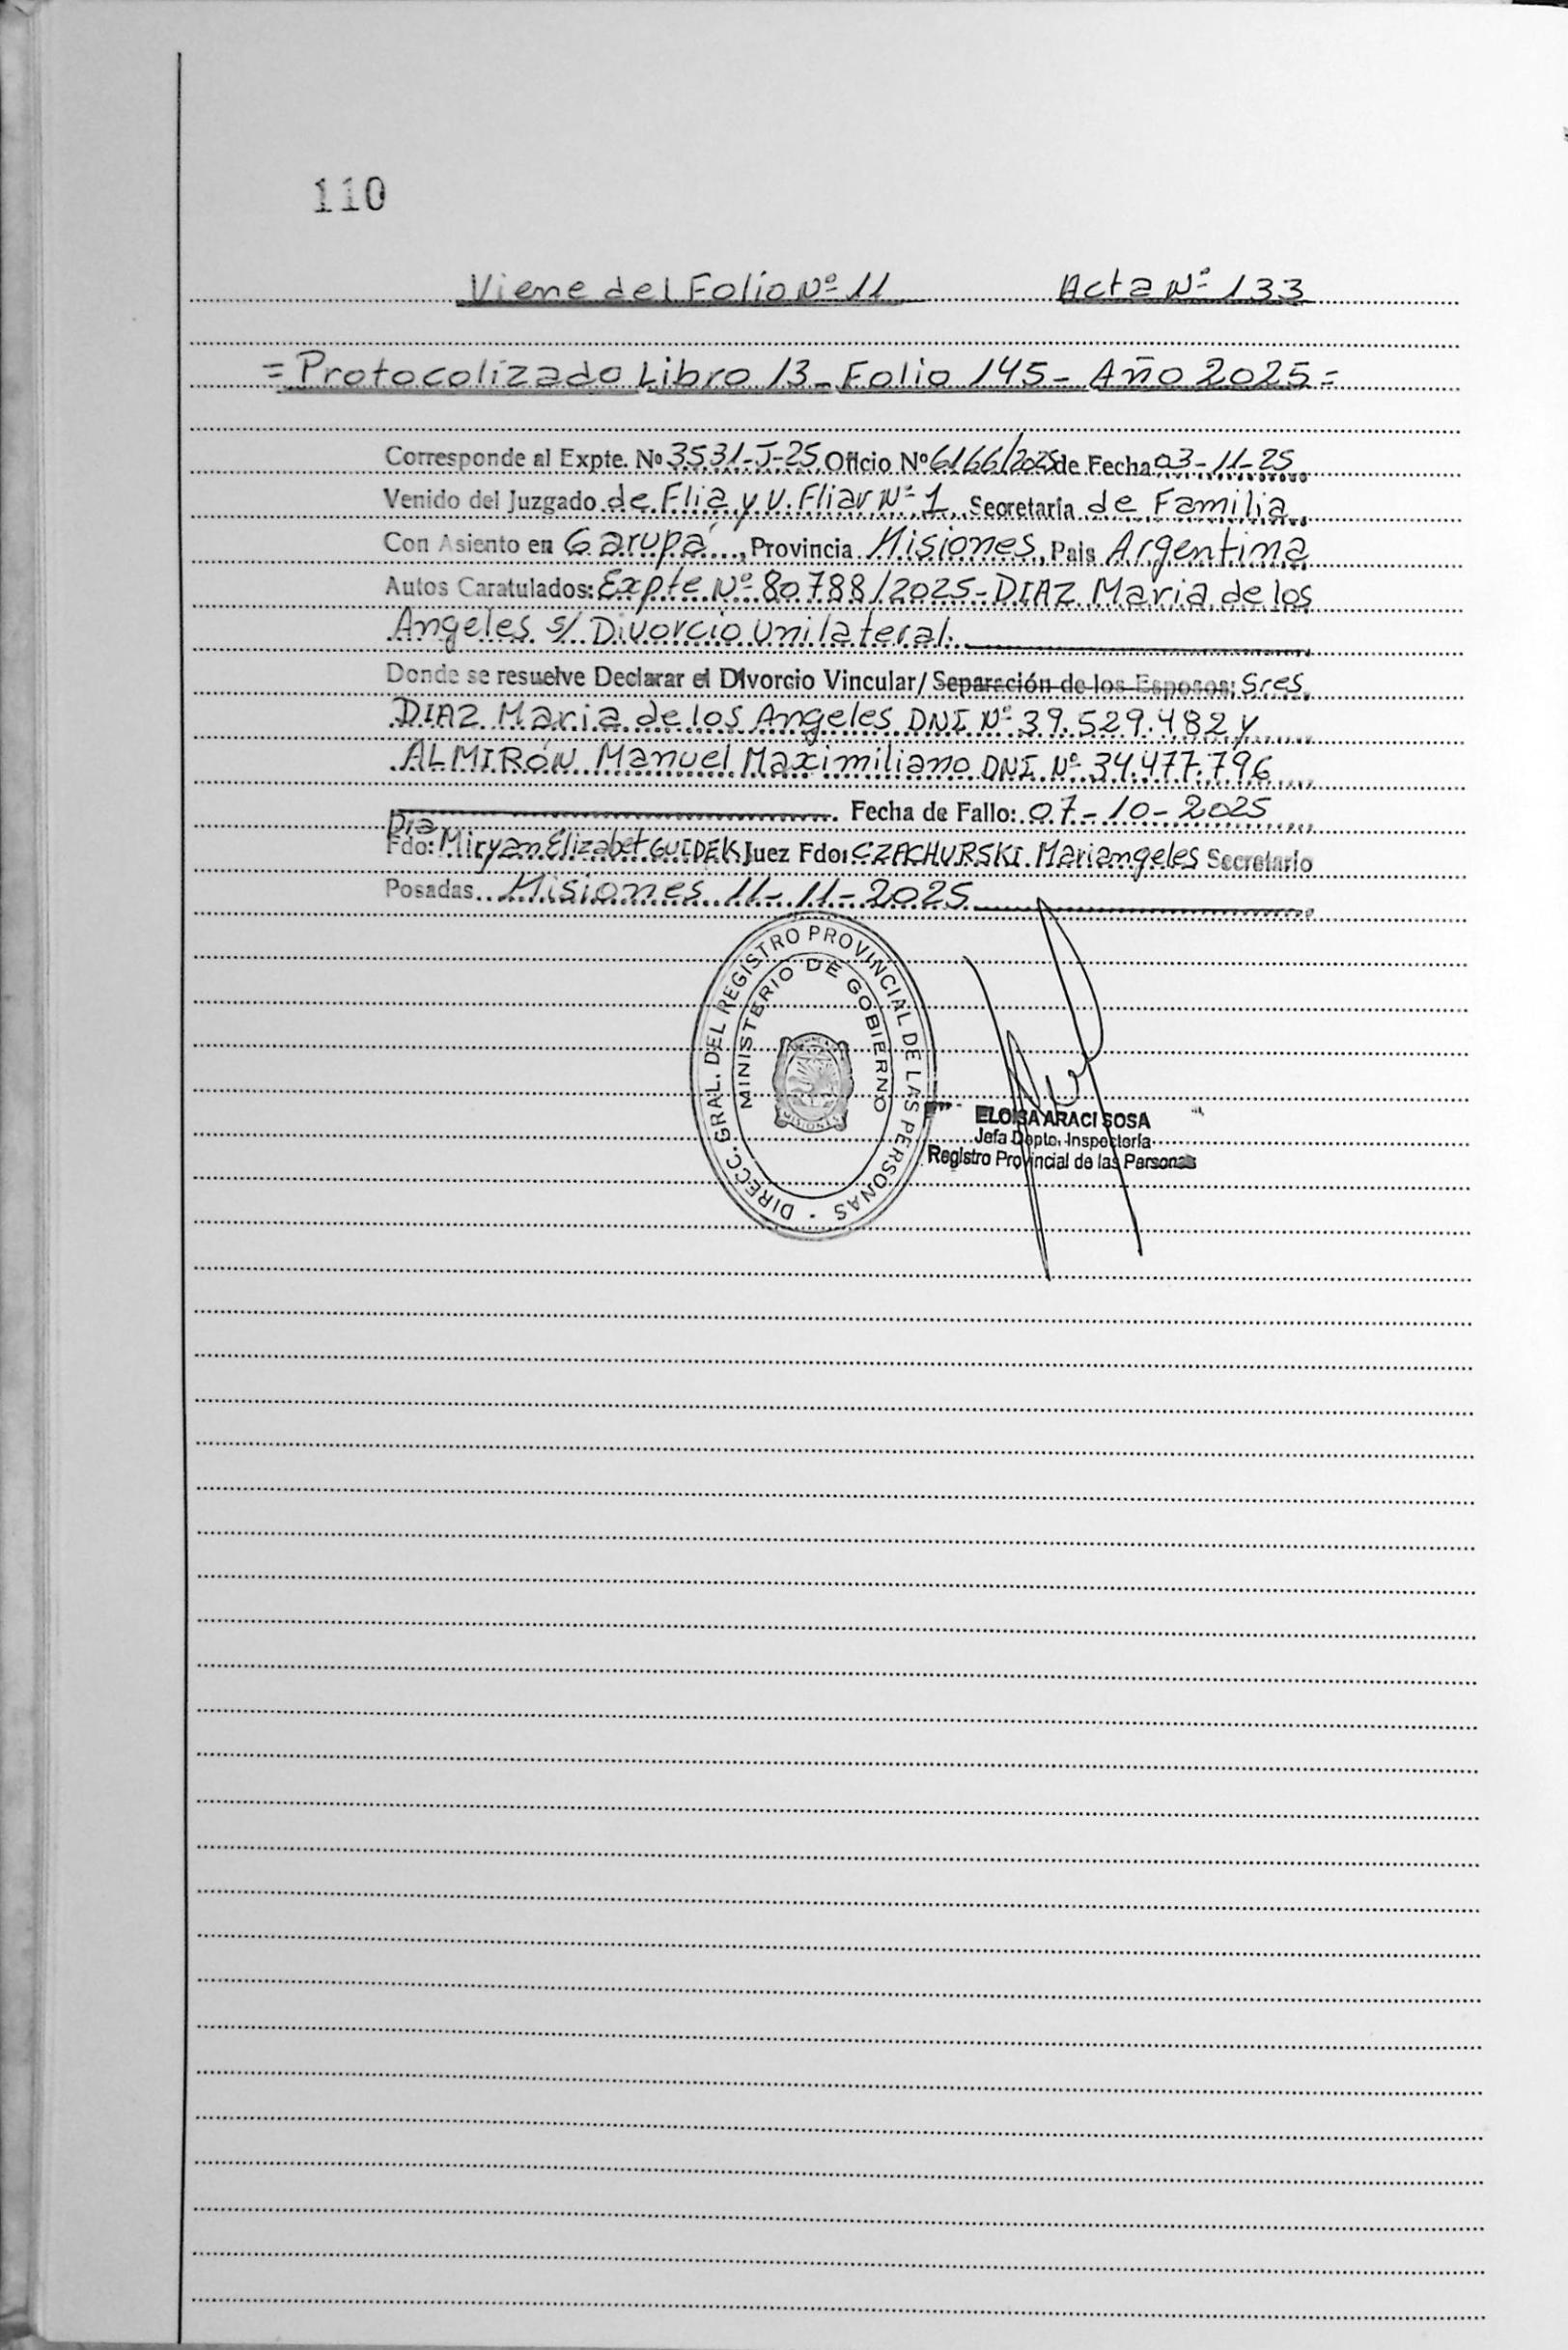 110
Viene del Folio Nº 11 Acta Nº 133
= Protocolizado Libro 13 - Folio 145 - Año 2025 =
Corresponde al Expte. Nº 3531-J-25 Oficio Nº 6166/2025 de Fecha 03-11-25
Venido del Juzgado de Flia y V. Fliar Nº 1 Secretaria de Familia
Con Asiento en Garupá, Provincia Misiones, Pais Argentina
Autos Caratulados: Expte Nº 80788/2025 - DIAZ Maria de los
Angeles s/ Divorcio Unilateral.
Donde se resuelve Declarar el Divorcio Vincular/ Separación de los Esposos: Sres.
DIAZ Maria de los Angeles DNI Nº 39.529.482 y
ALMIRÓN Manuel Maximiliano DNI Nº 34.477.796
. Fecha de Fallo: 07-10-2025
Dra
Fdo: Miryan Elizabet GUIDEK Juez Fdo: CZACHURSKI Mariangeles Secretario
Posadas Misiones 11-11-2025
DIRECC. GRAL. DEL REGISTRO PROVINCIAL DE LAS PERSONAS -
MINISTERIO DE GOBIERNO
MISIONES
ELOISA ARACI SOSA
Jefa Dpto. Inspectoría
Registro Provincial de las Personas